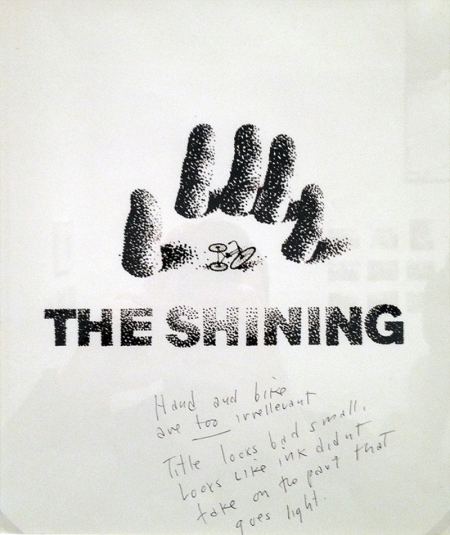 THE SHINING
Hand and bike
are too irrellevant
Title looks bad small,
Looks like ink didn't
take on the part that
goes light.